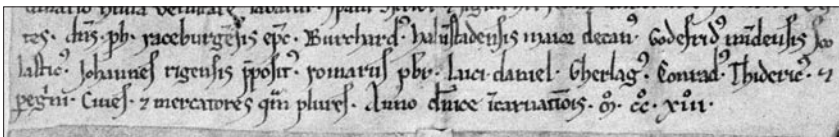 tes. dn̄s. ph̄. raceburgēsis ep̄c. Burchardꝰ. halūstadensis maior decanꝰ. Godefridꝰ. mīdensis sco
lasticꝰ. Johannes rigensis p̄positꝰ. romariꝰ pb̄r. Luci daniel. Gherlagꝰ. Conradꝰ. Thidericꝰ. ⁊
peg̾ni. Ciues. ⁊ mercatores qm̄ plures. Anno dn̄ice īcarnatiōis. m̊. cc̊. xiii.